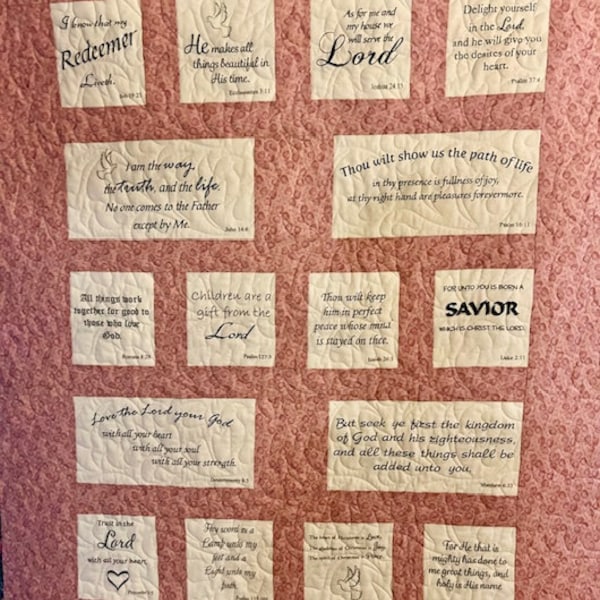 I know that my
Redeemer
Liveth.
Job 19:25
He makes all
things beautiful in
His time.
Ecclesiastes 3:11
As for me and
my house we
will serve the
Lord
Joshua 24:15
Delight yourself
in the Lord,
and he will give you
the desires of your
heart.
Psalm 37:4
I am the way,
the truth, and the life.
No one comes to the Father
except by Me.
John 14:6
Thou wilt show us the path of life
in thy presence is fullness of joy,
at thy right hand are pleasures forevermore.
Psalm 16:11
All things work
together for good to
those who love
God.
Romans 8:28
Children are a
gift from the
Lord
Psalm 127:3
Thou wilt keep
him in perfect
peace whose mind
is stayed on thee.
Isaiah 26:3
FOR UNTO YOU IS BORN A
SAVIOR
WHICH IS CHRIST THE LORD.
Luke 2:11
Love the Lord your God
with all your heart
with all your soul
with all your strength.
Deuteronomy 6:5
But seek ye first the kingdom
of God and his righteousness,
and all these things shall be
added unto you.
Matthew 6:33
Trust in the
Lord
with all your heart.
Proverbs 3:5
Thy word is a
Lamp unto my
feet and a
Light unto my
path.
Psalm
The heart of Christmas is Love,
The gladness of Christmas is Joy,
The spirit of Christmas is Peace.
For He that is
mighty has done to
me great things, and
holy is His name